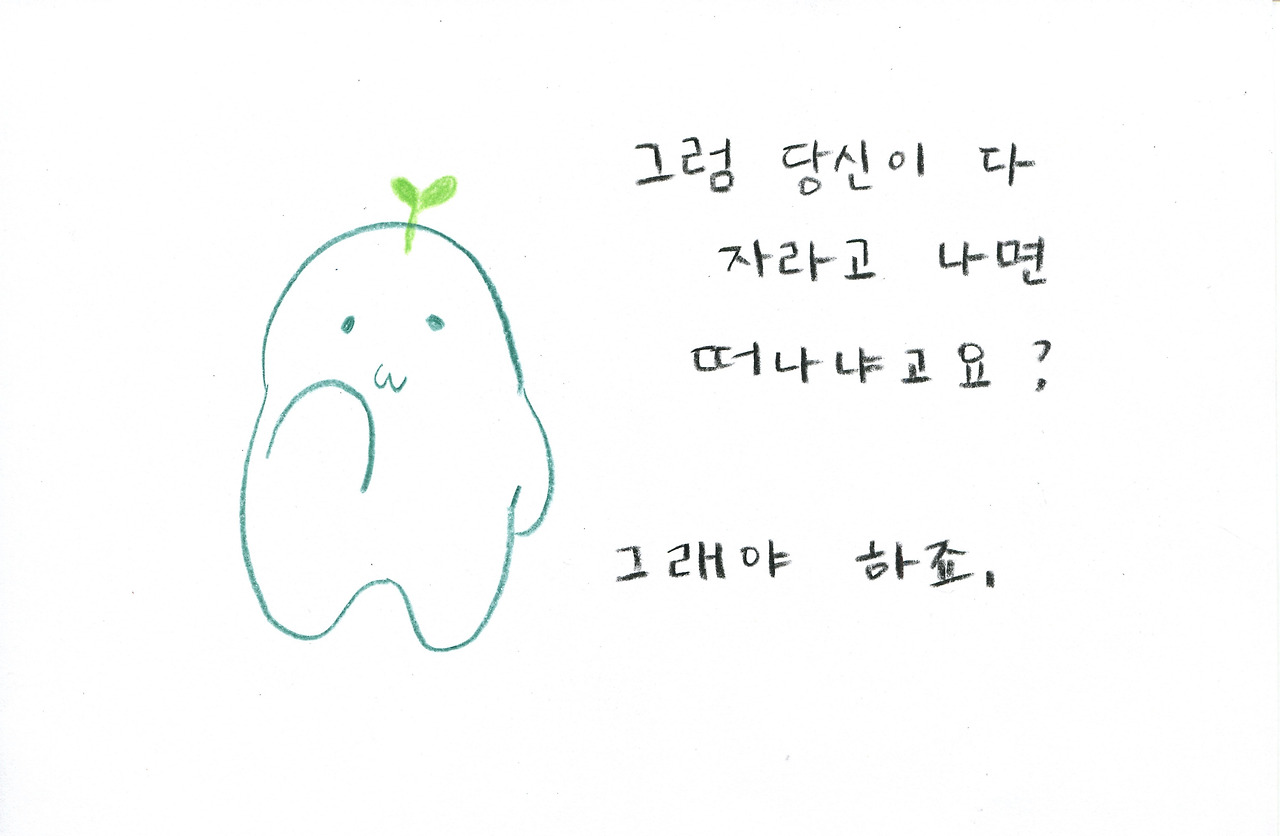 그럼 당신이 다
자라고 나면
떠나냐고요?
그래야 하죠.